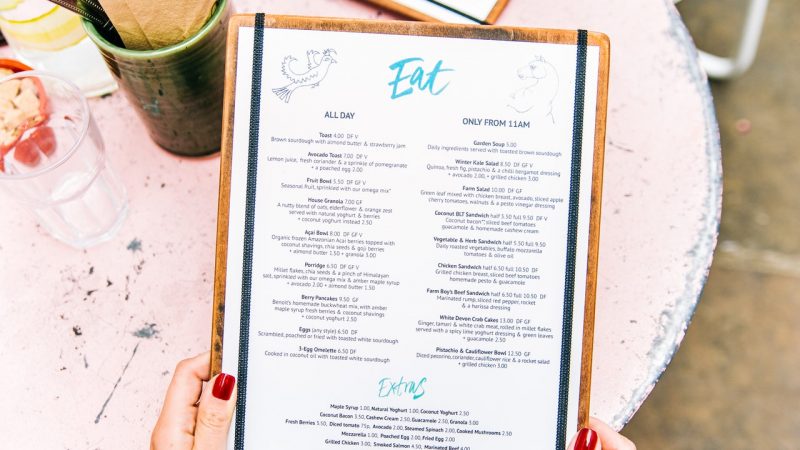 Eat
ALL DAY
Toast 4.00 DF V
Brown sourdough with almond butter & strawberry jam
Avocado Toast 7.00 DF V
Lemon juice, fresh coriander & a sprinkle of pomegranate
+ a poached egg 2.00
Fruit Bowl 5.50 DF V
Seasonal fruit, sprinkled with our omega mix*
House Granola 7.00 GF
A nutty blend of oats, elderflower & orange zest
served with natural yoghurt & berries
+ coconut yoghurt instead 2.50
Açai Bowl 8.00 DF V
Organic frozen Amazonian Açai berries topped with
coconut shavings, chia seeds & goji berries
+ almond butter 1.50 + granola 3.00
Porridge 6.50 DF GF V
Millet flakes, chia seeds & a pinch of Himalayan
salt, sprinkled with our omega mix & amber maple syrup
+ avocado 2.00 + almond butter 1.50
Berry Pancakes 9.50 GF
Benoit's homemade buckwheat mix, with amber
maple syrup fresh berries & coconut shavings
+ coconut yoghurt 2.50
Eggs (any style) 6.50 DF
Scrambled, poached or fried with toasted white sourdough
3-Egg Omelette 6.50 DF
Cooked in coconut oil with toasted white sourdough
ONLY FROM 11AM
Garden Soup 5.00
Daily ingredients served with toasted brown sourdough
Winter Kale Salad 8.50 DF GF V
Quinoa, fresh fig, pistachio & a chilli bergamot dressing
+ avocado 2.00, + grilled chicken 3.00
Farm Salad 10.00 DF GF
Green leaf mixed with chicken breast, avocado, sliced apple
cherry tomatoes, walnuts & a pesto vinegar dressing
Coconut BLT Sandwich half 5.50 full 9.50 DF V
Coconut bacon**, sliced beef tomatoes
guacamole & homemade cashew cream
Vegetable & Herb Sandwich half 5.50 full 9.50
Daily roasted vegetables, buffalo mozzarella
tomatoes & olive oil
Chicken Sandwich half 6.50 full 10.50 DF
Grilled chicken breast, sliced beef tomatoes
homemade pesto & guacamole
Farm Boy's Beef Sandwich half 6.50 full 10.50 DF
Marinated rump, sliced red pepper, rocket
& a harissa dressing
White Devon Crab Cakes 13.00 DF GF
Ginger, tamari & white crab meat, rolled in millet flakes
served with a spicy lime yoghurt dressing & green leaves
+ guacamole 2.50
Pistachio & Cauliflower Bowl 12.50 GF
Diced pecorino, coriander, cauliflower rice & a rocket salad
+ grilled chicken 3.00
Extras
Maple Syrup 1.00, Natural Yoghurt 1.00, Coconut Yoghurt 2.50
Coconut Bacon 3.50, Cashew Cream 2.50, Guacamole 2.50, Granola 3.00
Fresh Berries 3.50, Diced tomato 75p, Avocado 2.00, Steamed Spinach 2.00, Cooked Mushrooms 2.50
Mozzarella 1.00, Poached Egg 2.00, Fried Egg 2.00
Grilled Chicken 3.00, Smoked Salmon 4.50, Marinated Beef 4.00